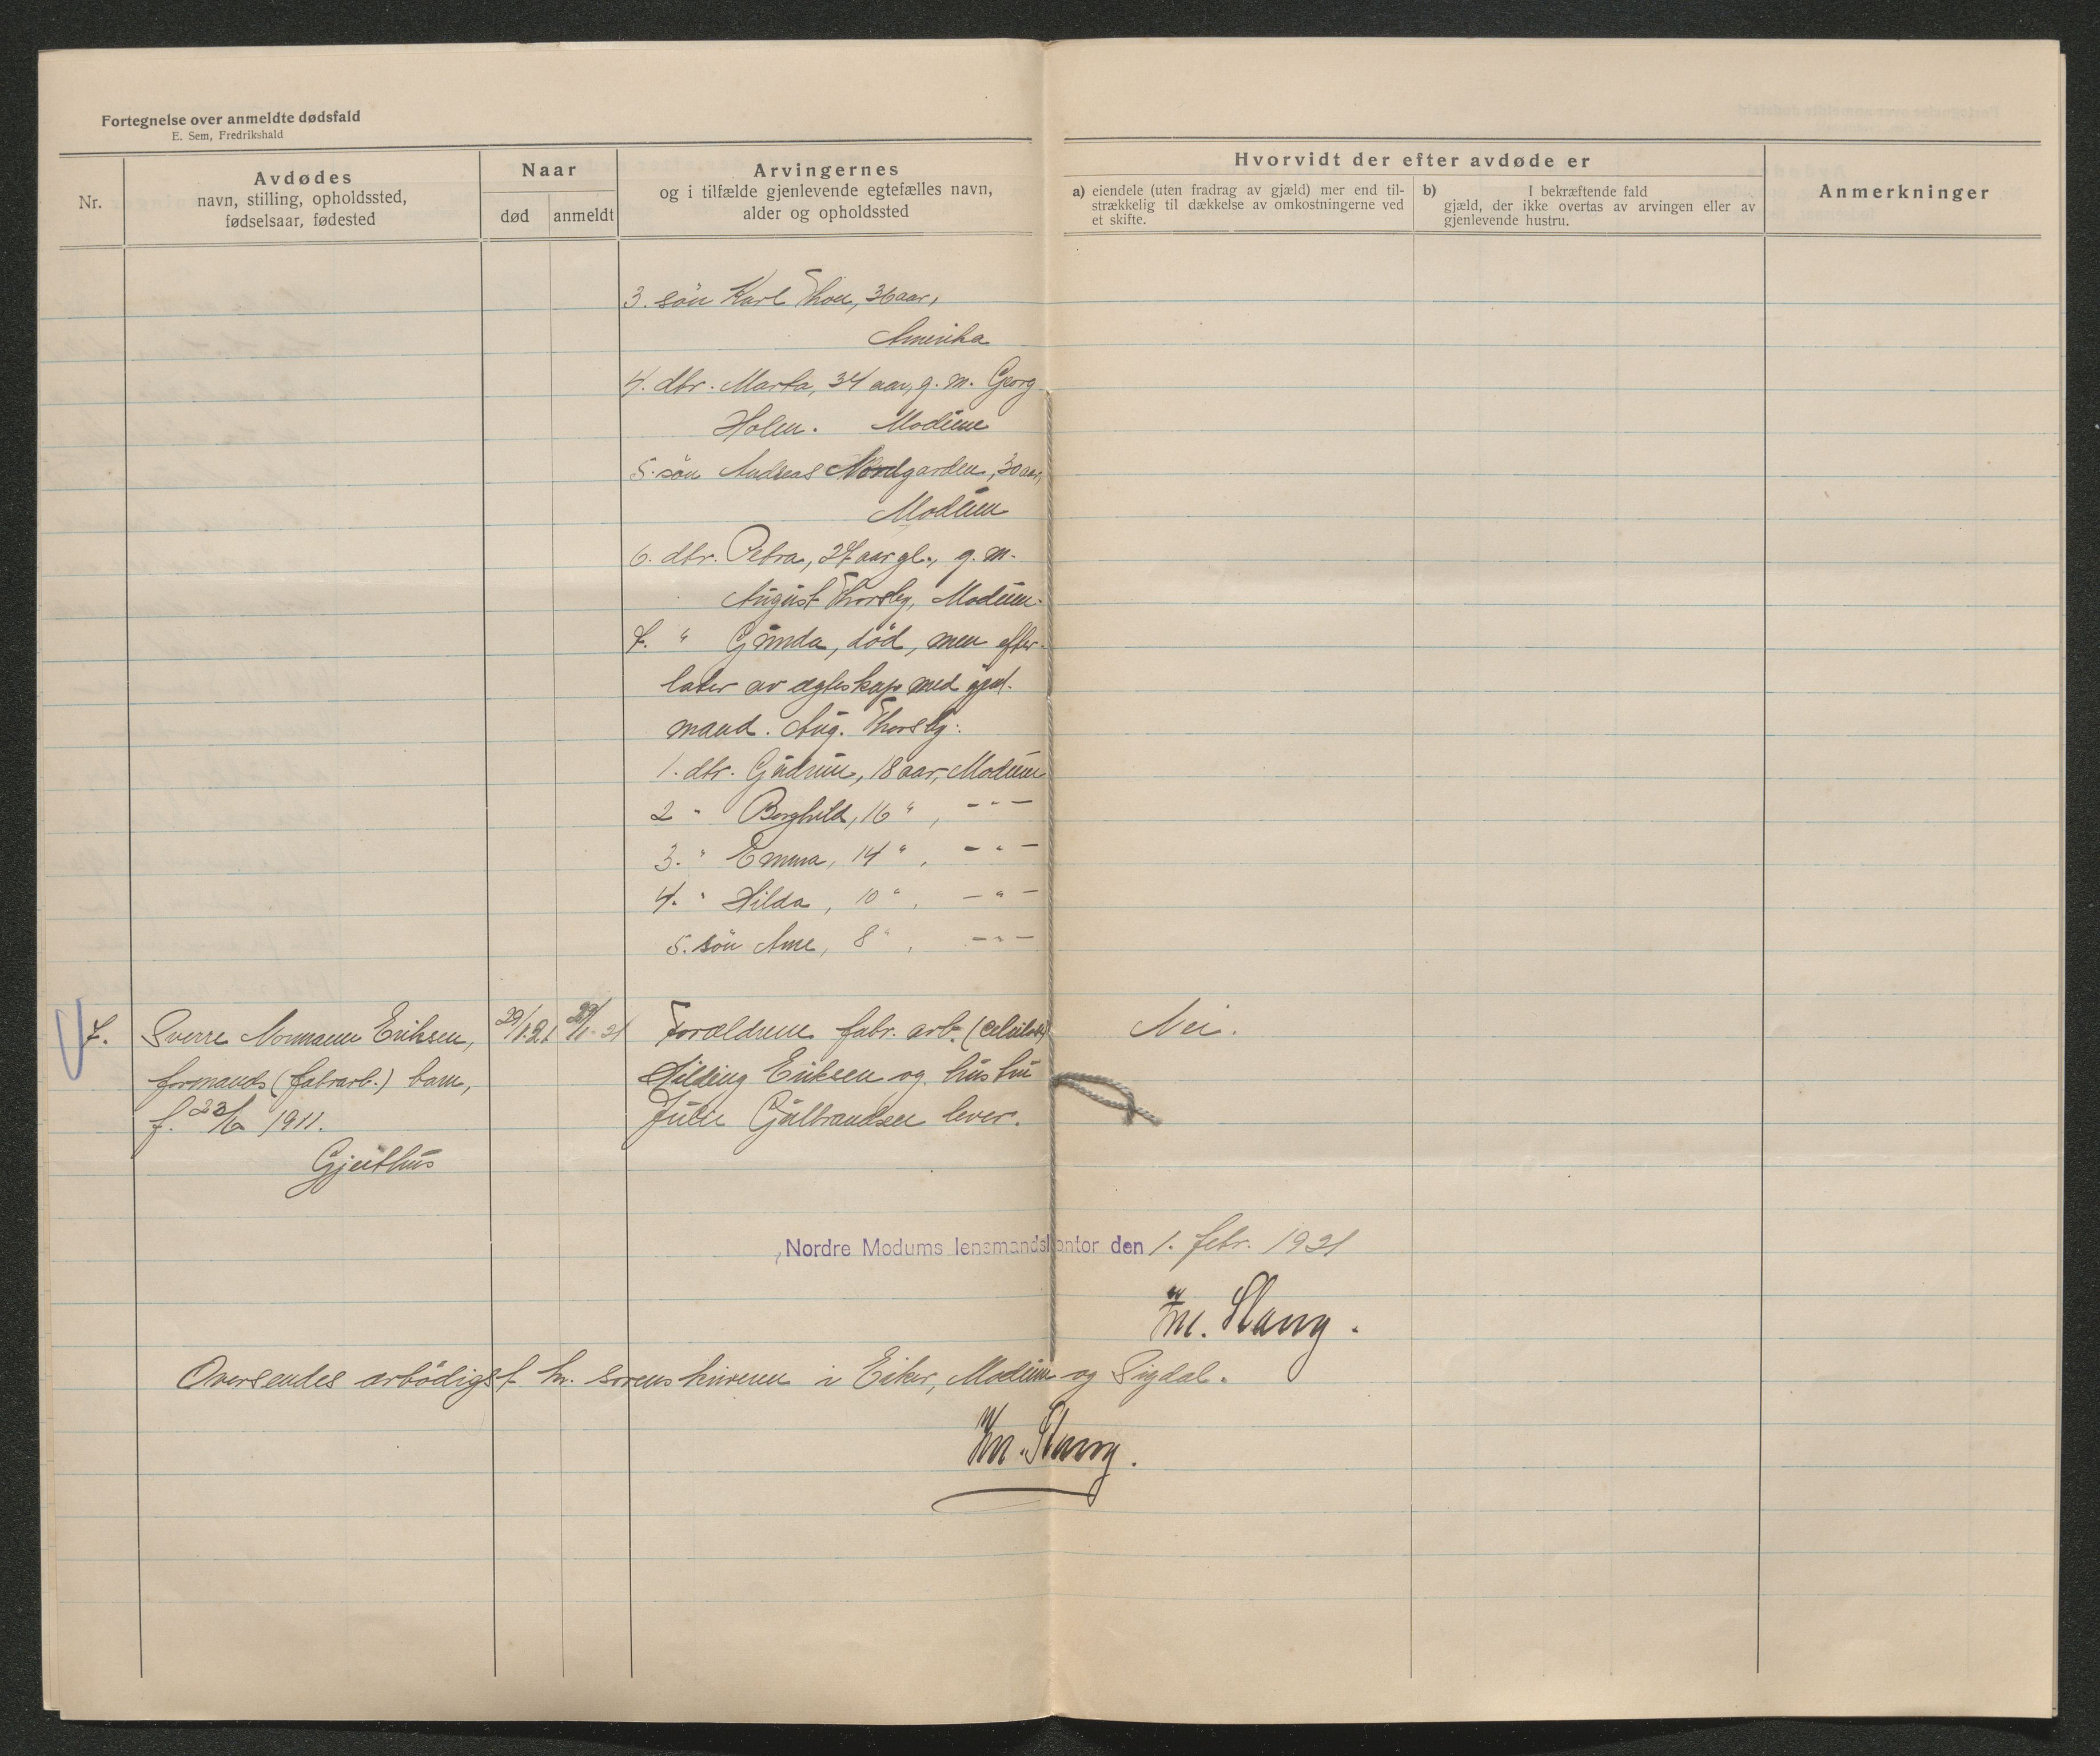 Fortegnelse over anmeldte dødsfald
E. Sem, Fredrikshald
Nr.
Avdødes
navn, stilling, opholdssted,
fødselsaar, fødested
Naar
død
anmeldt
Arvingernes
og i tilfælde gjenlevende egtefælles navn,
alder og opholdssted
Hvorvidt der efter avdøde er
a) eiendele (uten fradrag av gjæld) mer end til-
strækkelig til dækkelse av omkostningerne ved
et skifte.
b) I bekræftende fald
gjæld, der ikke overtas av arvingen eller av
gjenlevende hustru.
Anmerkninger
3. søn Karl Thon, 36 aar,
Amerika
4. dtr. Marta, 34 aar, g. m. Georg
Holen. Modum
5. søn Andreas Nordgarden, 30 aar,
Modum
6. dtr. Petra, 27 aar gl., g. m.
August Thorsby, Modum.
7. " Gunda, død, men efter-
later av egteskap med gjenl.
mand. Aug. Thorsby:
1. dtr. Gudrun, 18 aar, Modum
2 " Borghild, 16 ", - " -
3. " Emma, 14 ", - " -
4. " Hilda, 10 ", - " -
5. søn Arne, 8 ", - " -
7. Sverre Normann Eriksen,
formands (fabrarb.) barn,
f. 23/6 1911.
Gjeithus
29/1-21
29/1-21
Forældrene fabr. arb. (celulose)
Hilding Eriksen og hustru
Julie Gulbrandsen lever.
Nei.
Nordre Modums lensmandskontor den 1. febr. 1921
M. Stang.
Oversendes ærbødigst hr. sorenskriveren i Eiker, Modum og Sigdal.
M. Stang.